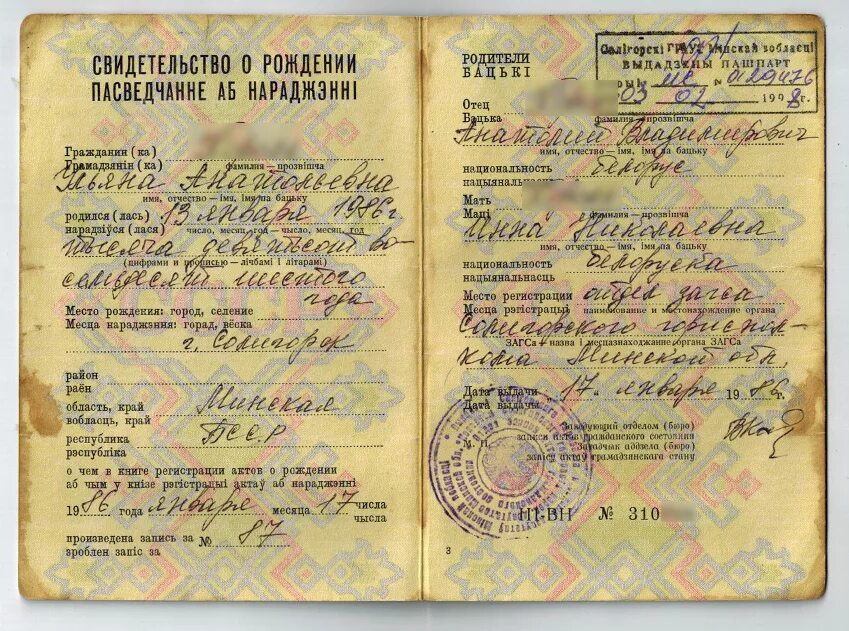 СВИДЕТЕЛЬСТВО О РОЖДЕНИИ
ПАСВЕДЧАННЕ АБ НАРАДЖЭННІ
Гражданин (ка)
Грамадзянін (ка)
фамилия — прозвішча
Ульяна Анатольевна
имя, отчество — імя, імя па бацьку
родился (лась) 13 января 1986г
нарадзіўся (лася) число, месяц, год — чысло, месяц, год
тысяча девятьсот во-
(цифрами и прописью — лічбамі і літарамі)
семьдесят шестого
года
Место рождения: город, селение
Месца нараджэння: горад, вёска
г. Солигорск
район
раён
область, край Минская
вобласць, край
республика БССР
рэспубліка
о чем в книге регистрации актов о рождении
аб чым у кнізе рэгістрацыі актаў аб нараджэнні
1986 года января месяца 17 числа
чысла
произведена запись за № 87
зроблен запіс за
РОДИТЕЛИ
БАЦЬКІ
Салігорскі ГРАУС Мінскай вобласці
ВЫДАДЗЕНЫ ПАШПАРТ
МС № 0129476
03 02 1998г.
Отец
Бацька
фамилия — прозвішча
Анатолий Владимирович
имя, отчество — імя, імя па бацьку
национальность белорус
нацыянальнасць
Мать
Маці
фамилия — прозвішча
Инна Николаевна
имя, отчество — імя, імя па бацьку
национальность белоруска
нацыянальнасць
Место регистрации отдел загса
Месца рэгістрацыі наименование и местонахождение органа
Солигорского гориспол-
ЗАГСа — назва і месцазнаходжанне органа ЗАГСа
кома Минской обл.
Дата выдачи „17" января 1986г.
Дата выдачы
Заведующий отделом (бюро)
М. П. записи актов гражданского состояния
Загадчык аддзела (бюро)
запісу актаў грамадзянскага стану
III-ВН № 310
3